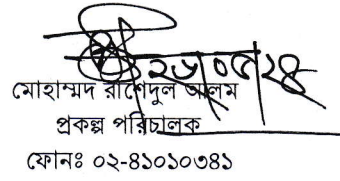 ২৬/০৫/২৪
মোহাম্মদ রাশেদুল আলম
প্রকল্প পরিচালক
ফোনঃ ০২-৪১০১০৩৪১